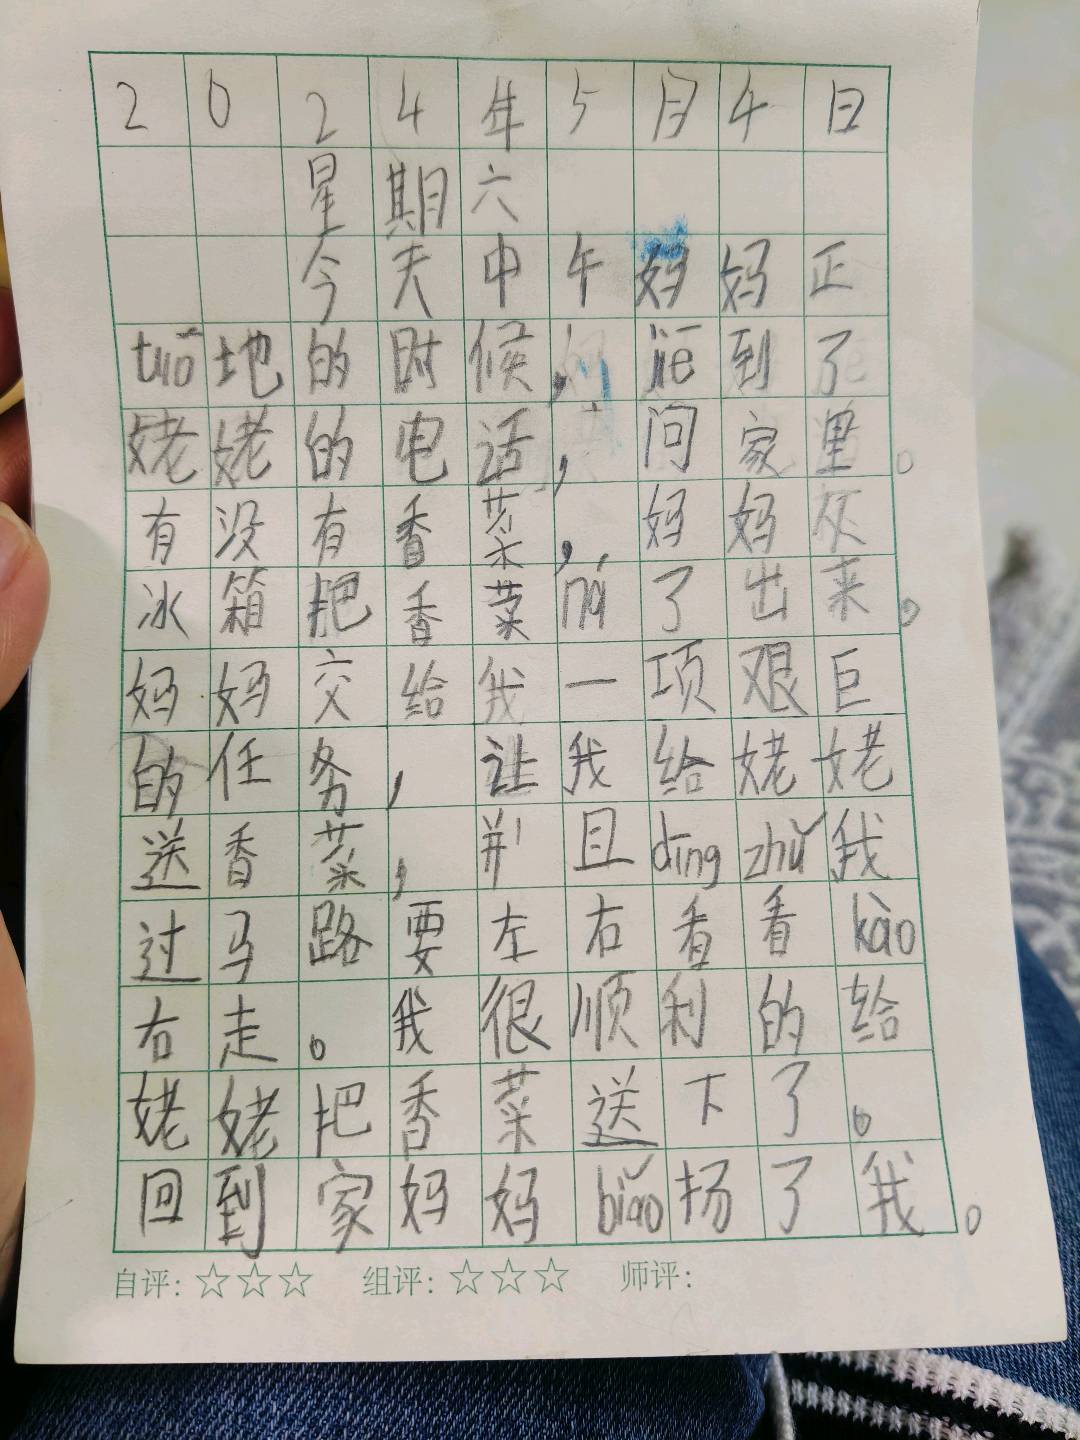 2024年5月4日
星期六
今天中午妈妈正
tuō地的时候，jiē到了
姥姥的电话，问家里。
有没有香菜，妈妈从
冰箱把香菜ná了出来。
妈妈交给我一项艰巨
的任务，让我给姥姥
送香菜，并且dīng zhǔ我
过马路要左右看看kào
右走。我很顺利的给
姥姥把香菜送下了。
回到家妈妈biǎo扬了我。
自评：☆☆☆ 组评：☆☆☆ 师评：